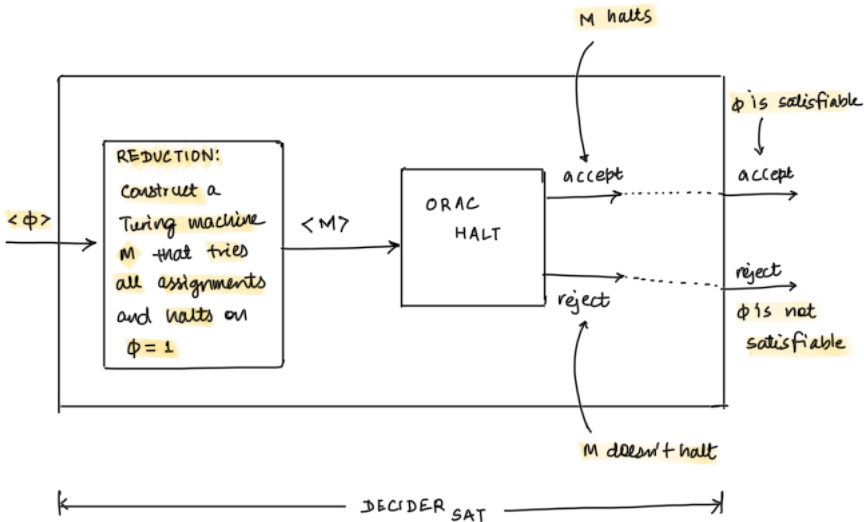 M halts
φ is satisfiable
accept
REDUCTION:
Construct a
Turing machine
M that tries
all assignments
and halts on
φ = 1
<φ>
<M>
ORAC
HALT
accept
reject
reject
φ is not
satisfiable
M doesn't halt
DECIDER SAT